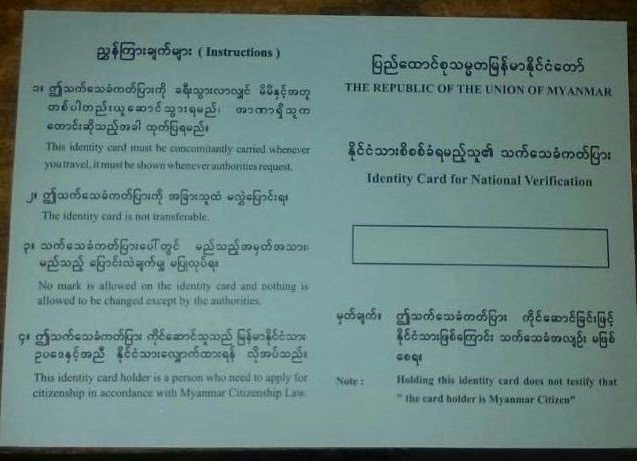 ညွှန်ကြားချက်များ ( Instructions )
၁။ ဤသက်သေခံကတ်ပြားကို ခရီးသွားလာလျှင် မိမိနှင့်အတူ
တစ်ပါတည်းယူဆောင်သွားရမည်၊ အာဏာရှိသူက
တောင်းဆိုသည့်အခါ ထုတ်ပြရမည်။
This identity card must be concomitantly carried whenever
you travel, it must be shown whenever authorities request.
၂။ ဤသက်သေခံကတ်ပြားကို အခြားသူထံ မလွှဲပြောင်းရ။
The identity card is not transferable.
၃။ သက်သေခံကတ်ပြားပေါ်တွင် မည်သည့်အမှတ်အသား၊
မည်သည့် ပြောင်းလဲချက်မျှ မပြုလုပ်ရ။
No mark is allowed on the identity card and nothing is
allowed to be changed except by the authorities.
၄။ ဤသက်သေခံကတ်ပြား ကိုင်ဆောင်သူသည် မြန်မာနိုင်ငံသား
ဥပဒေနှင့်အညီ နိုင်ငံသားလျှောက်ထားရန် လိုအပ်သည်။
This identity card holder is a person who need to apply for
citizenship in accordance with Myanmar Citizenship Law.
ပြည်ထောင်စုသမ္မတမြန်မာနိုင်ငံတော်
THE REPUBLIC OF THE UNION OF MYANMAR
နိုင်ငံသားစိစစ်ခံရမည့်သူ၏ သက်သေခံကတ်ပြား
Identity Card for National Verification
မှတ်ချက်။ ဤသက်သေခံကတ်ပြား ကိုင်ဆောင်ခြင်းဖြင့်
နိုင်ငံသားဖြစ်ကြောင်း သက်သေခံအလျဉ်း မဖြစ်
စေရ။
Note : Holding this identity card does not testify that
" the card holder is Myanmar Citizen"